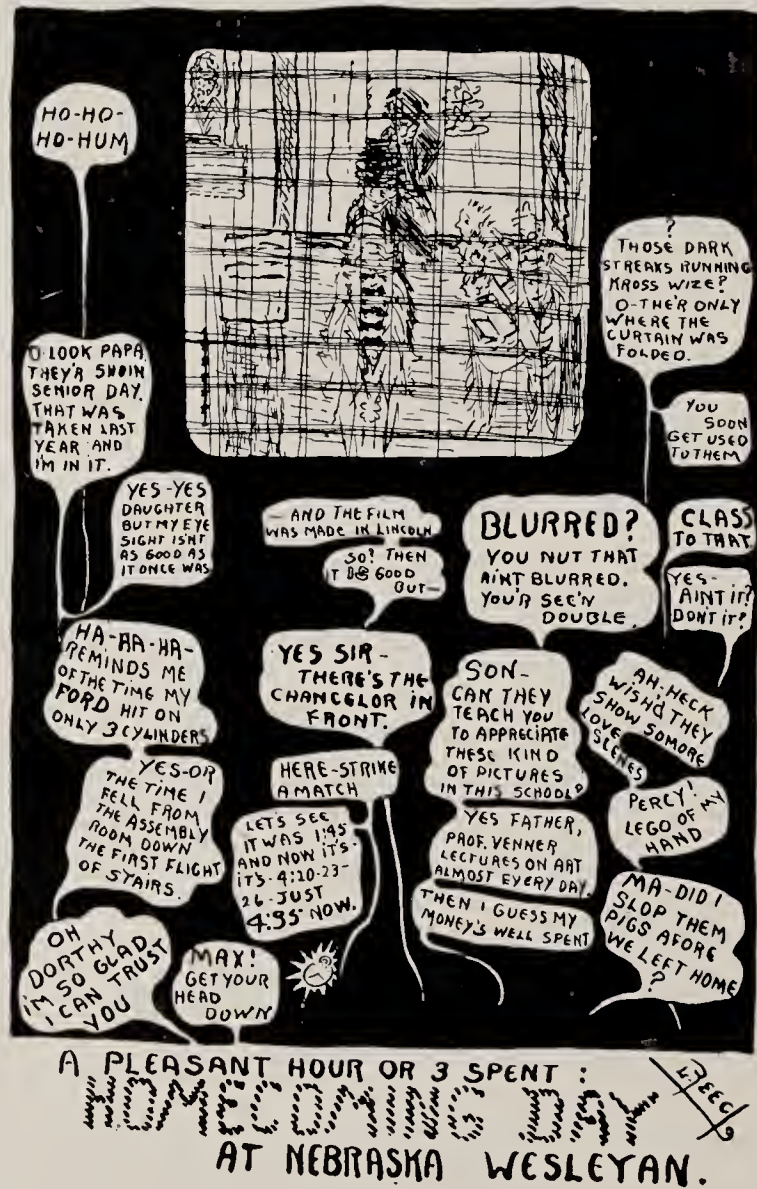 HO-HO-
HO-HUM
O-LOOK PAPA
THEY'R SHOIN
SENIOR DAY.
THAT WAS
TAKEN LAST
YEAR AND
I'M IN IT.
YES-YES
DAUGHTER
BUT MY EYE
SIGHT ISN'T
AS GOOD AS
IT ONCE WAS
HA-HA-HA-
REMINDS ME
OF THE TIME MY
FORD HIT ON
ONLY 3 CYLINDERS
YES-OR
THE TIME I
FELL FROM
THE ASSEMBLY
ROOM DOWN
THE FIRST FLIGHT
OF STAIRS.
OH
DORTHY
I'M SO GLAD
I CAN TRUST
YOU
MAX!
GET YOUR
HEAD
DOWN
- AND THE FILM
WAS MADE IN LINCOLN
SO? THEN
IT IS GOOD
BUT-
YES SIR-
THERE'S THE
CHANCELOR IN
FRONT.
HERE-STRIKE
A MATCH
LET'S SEE
IT WAS 1:45
AND NOW IT'S-
IT'S-4:20-23-
26-JUST
4:35 NOW.
?
THOSE DARK
STREAKS RUNNING
KROSS WIZE?
O-THE'R ONLY
WHERE THE
CURTAIN WAS
FOLDED.
YOU
SOON
GET USED
TO THEM
BLURRED?
YOU NUT THAT
AINT BLURRED.
YOU'R SEE'N
DOUBLE.
CLASS
TO THAT
YES-
AINT IT?
DON'T IT?
SON-
CAN THEY
TEACH YOU
TO APPRECIATE
THESE KIND
OF PICTURES
IN THIS SCHOOL?
YES FATHER,
PROF. VENNER
LECTURES ON ART
ALMOST EVERY DAY.
THEN I GUESS MY
MONEY'S WELL SPENT
AH, HECK
WISH'D THEY
SHOW SOMORE
LOVE
SCENES
PERCY!
LEGO OF MY
HAND
MA-DID I
SLOP THEM
PIGS AFORE
WE LEFT HOME
?
A PLEASANT HOUR OR 3 SPENT:
HOMECOMING DAY
AT NEBRASKA WESLEYAN.